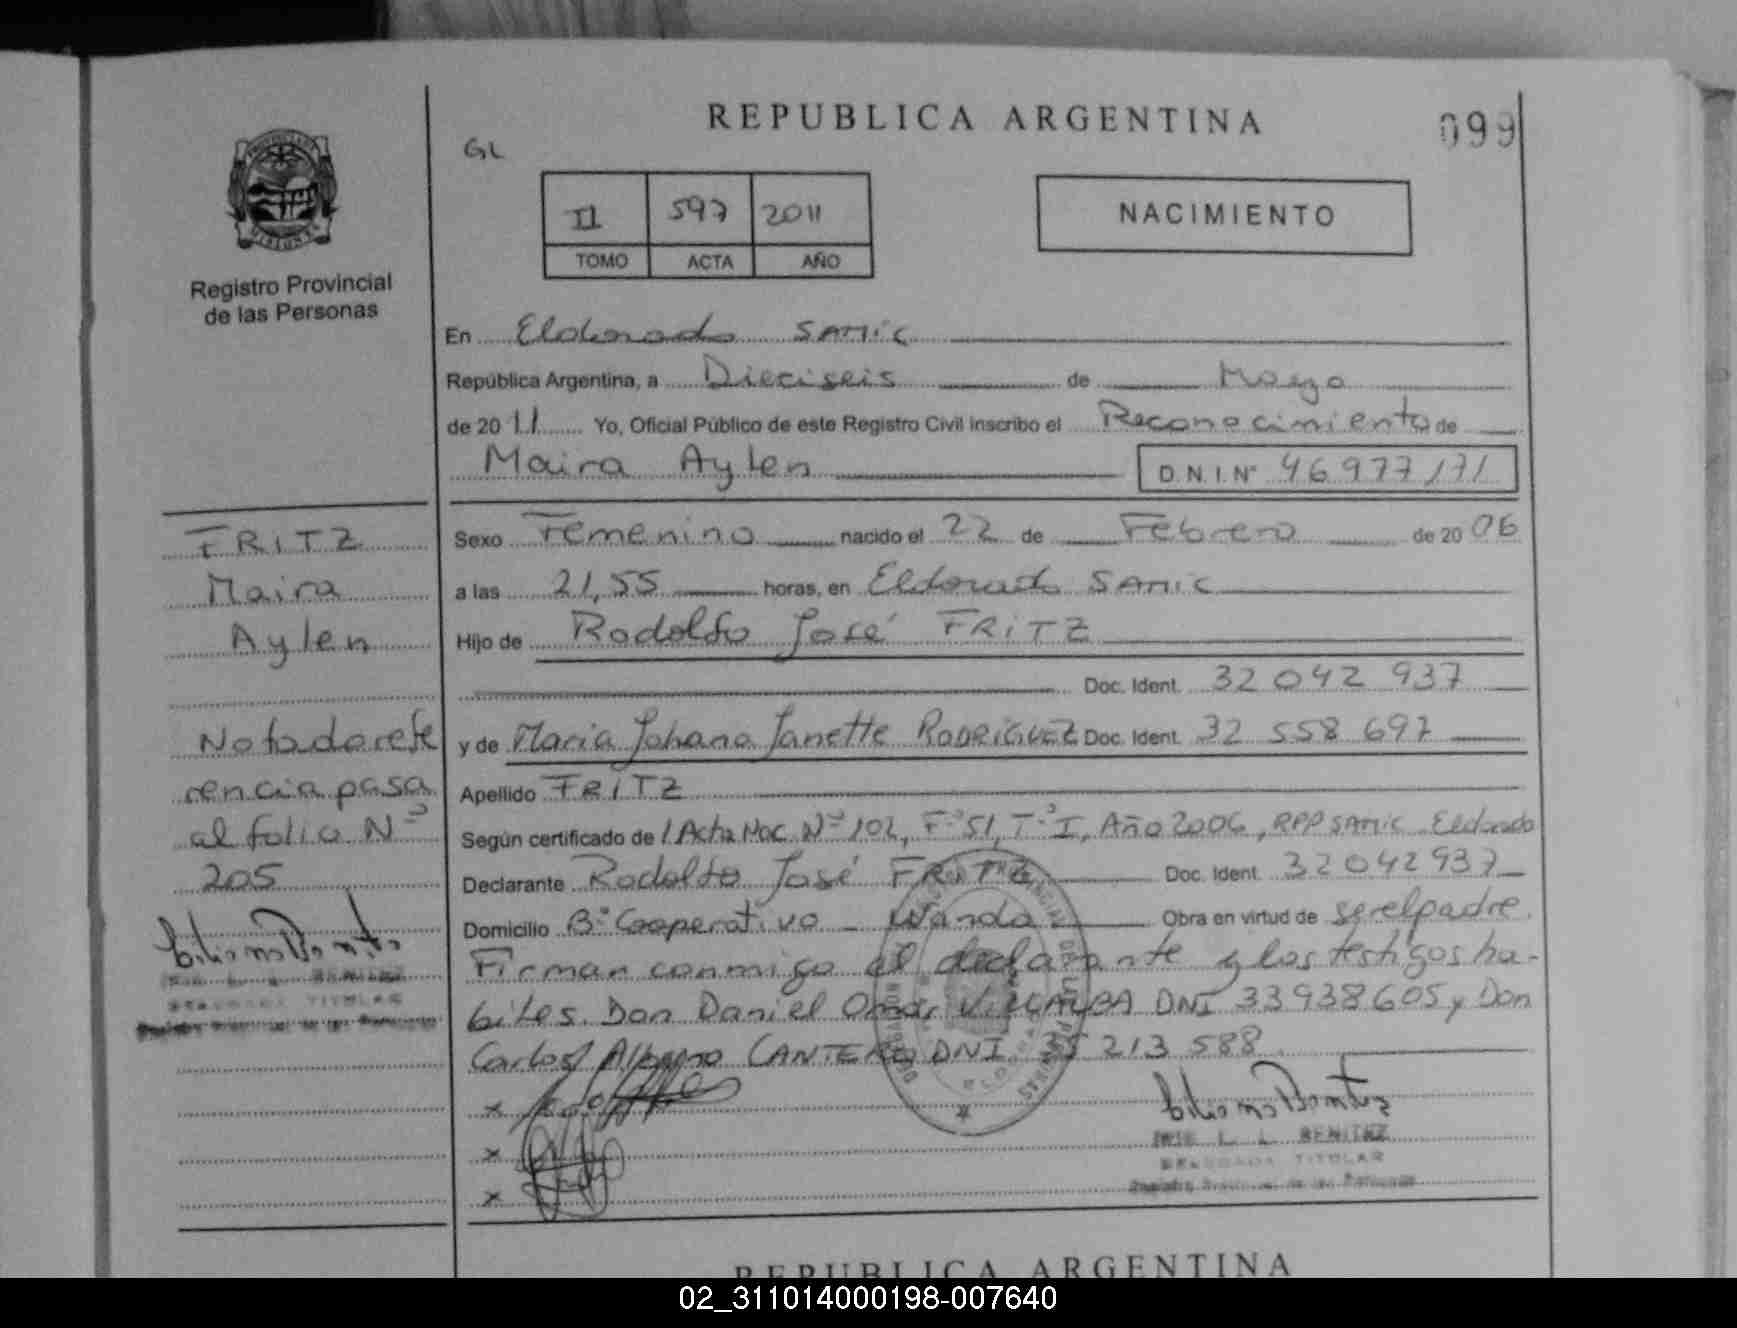 REPUBLICA ARGENTINA
099
GL
II 597 2011
TOMO ACTA AÑO
NACIMIENTO
Registro Provincial
de las Personas
En Eldorado SAMIC
República Argentina, a Dieciseis de Marzo
de 2011 Yo, Oficial Público de este Registro Civil inscribo el Reconocimiento de
Maira Aylen D.N.I.Nº 46977171
Sexo Femenino nacido el 22 de Febrero de 2006
a las 21,55 horas, en Eldorado SAMIC
Hijo de Rodolfo José FRITZ
Doc. Ident. 32 042 937
y de Maria Johana Janette RODRIGUEZ Doc. Ident. 32 558 697
Apellido FRITZ
Según certificado de Acta Nac. Nº 102, Fº 51, Tº I, Año 2006, RPP SAMIC Eldorado
Declarante Rodolfo José FRITZ Doc. Ident. 32042937
Domicilio Bº Cooperativo - Wanda Obra en virtud de ser el padre.
Firman conmigo el declarante y los testigos ha-
biles. Don Daniel Omar VILLALBA DNI 33938605 y Don
Carlos CANTERO DNI 35 213 588
x
x
x
L. L. BENITEZ
DELEGADA TITULAR
FRITZ
Maira
Aylen
Nota de refe
rencia pasa
al folio Nº
205
BENITEZ
DELEGADA TITULAR
REPUBLICA ARGENTINA
02_311014000198-007640